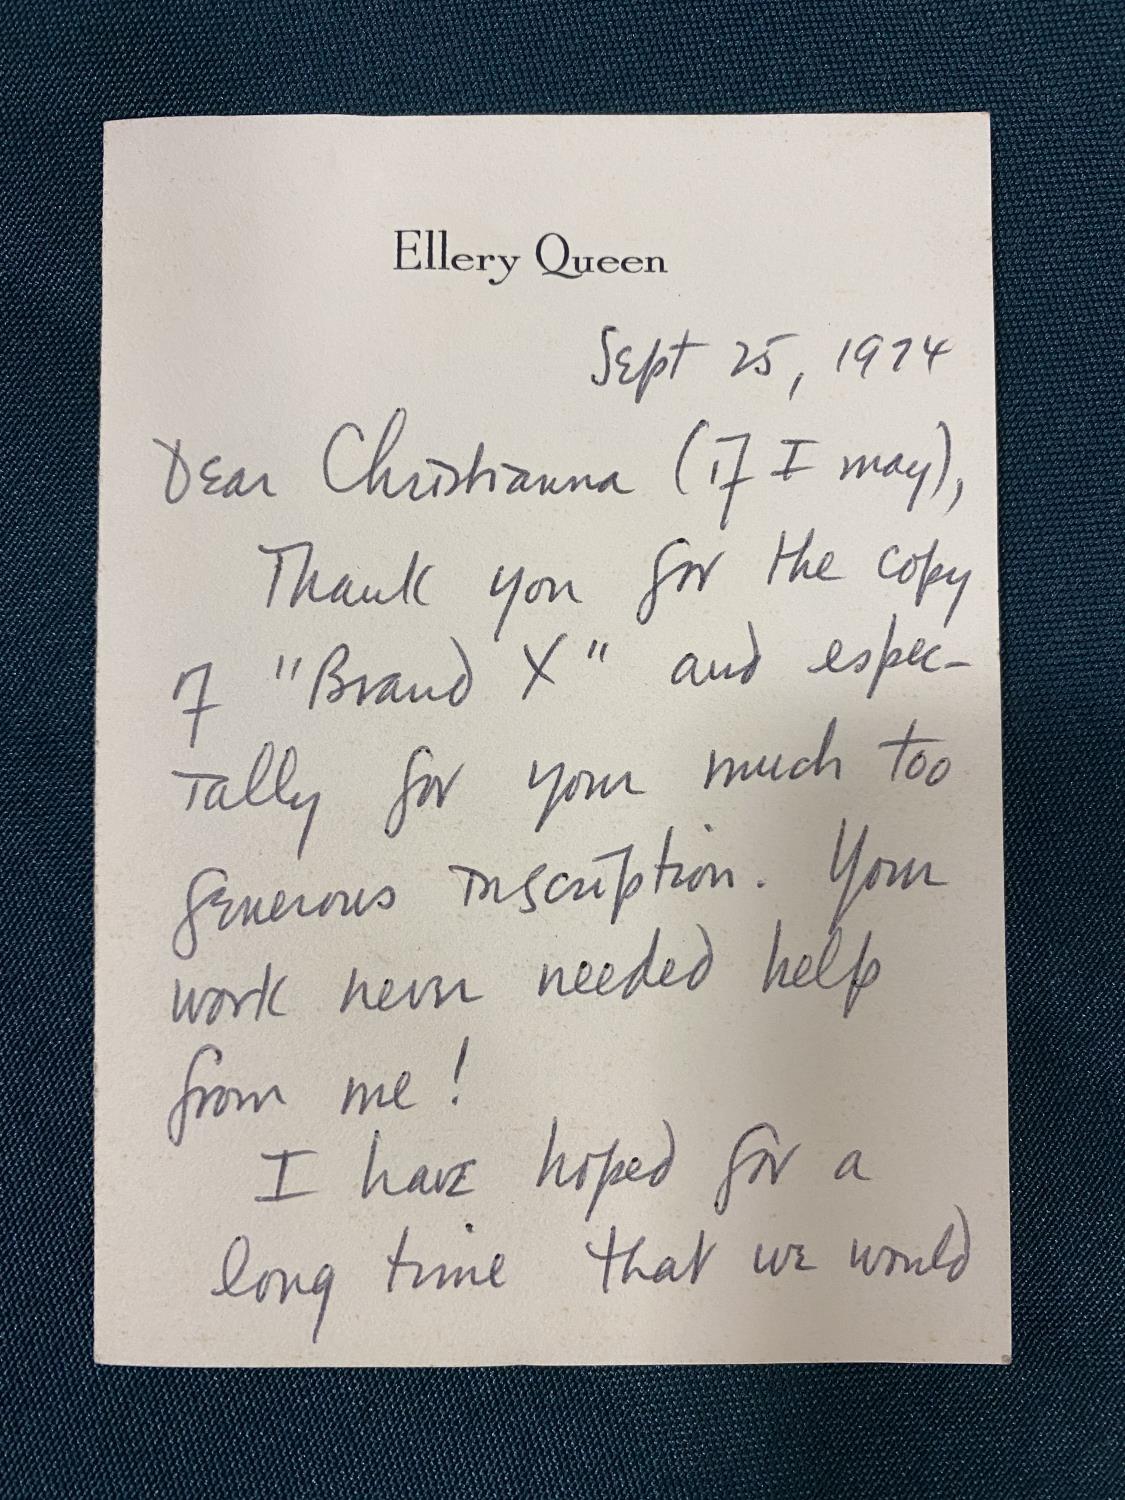 Ellery Queen
Sept 25, 1974
Dear Christianna (if I may),
Thank you for the copy
of "Brand X" and espec-
ially for your much too
generous inscription. Your
work never needed help
from me!
I have hoped for a
long time that we would